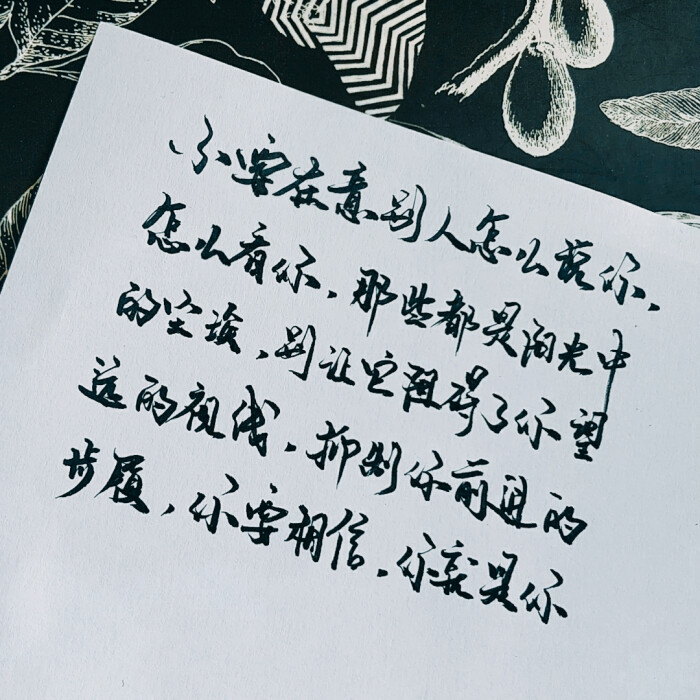 不要在意别人怎么说你，
怎么看你，那些都是阳光中
的尘埃，别让它阻碍了你望
远的视线，抑制你前进的
步履，你要相信，你就是你